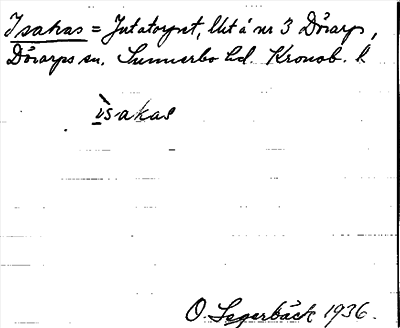 Isakas = Jutatorpet, Ut å nr 3 Dörarp,
Dörarps sn. Sunnerbo hd. Kronob. l
ìsakas
O. Segerbäck 1936.